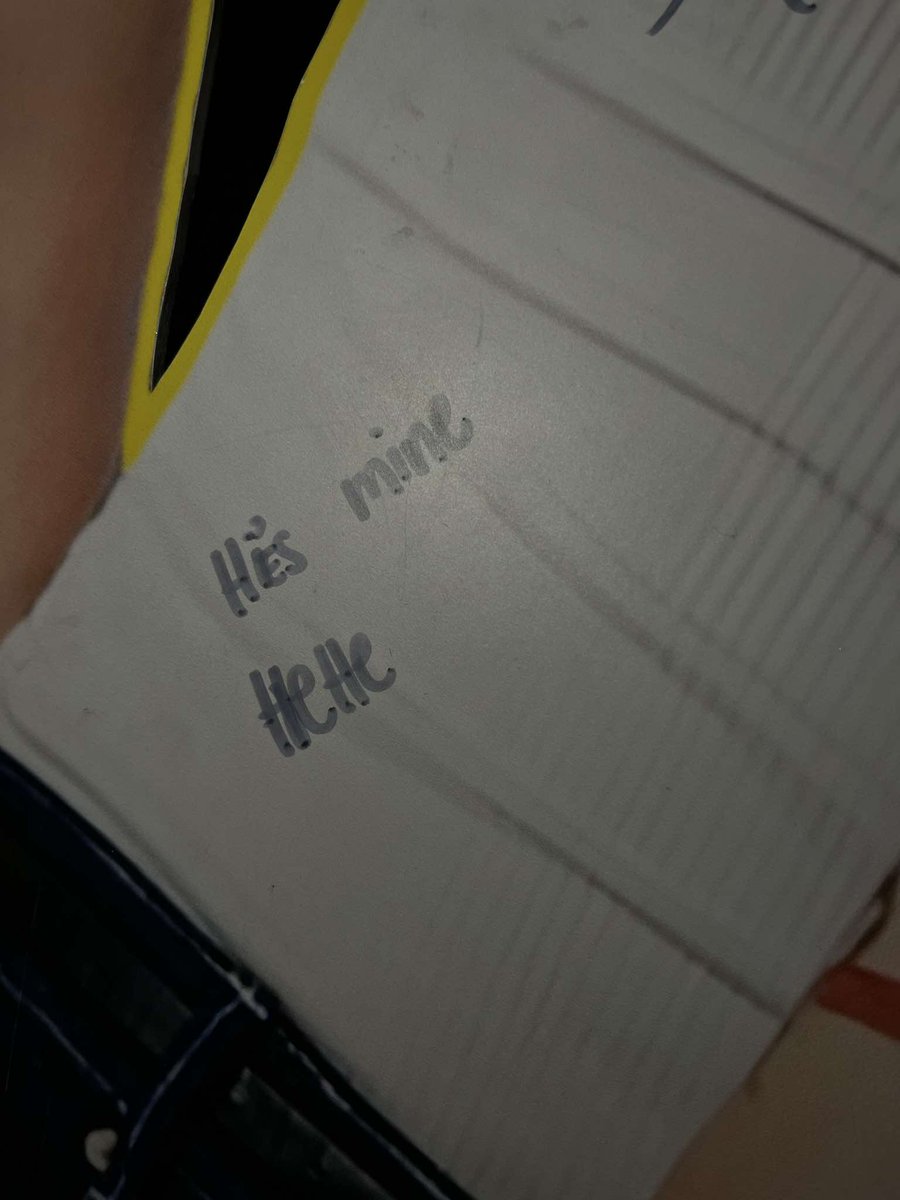 He's mine
HeHe